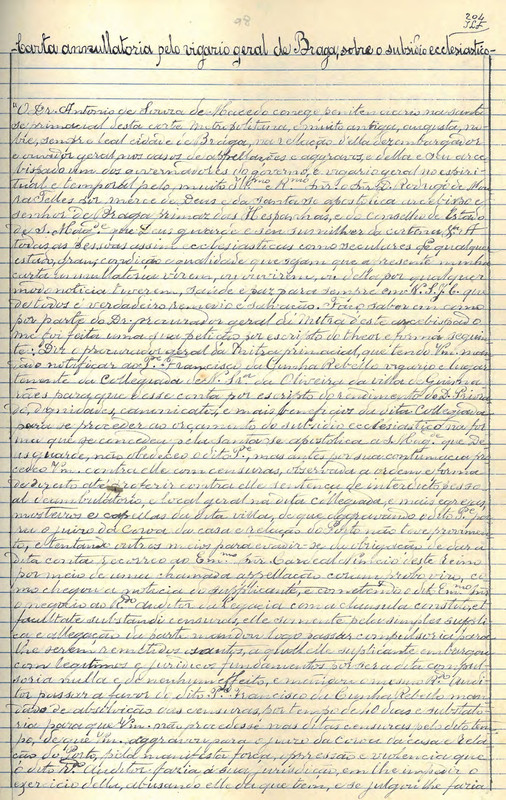 98
204
-Carta annullatoria pelo vigario geral de Braga, sobre o subsidio ecclesiastico-
"O Dr. Antonio de Souza de Macedo conego penitenciario na santa
se primacial desta corte metropolitana, e muito antiga, augusta, no-
bre, sempre leal cidade de Braga, na relação della dezembargador
e ouvidor geral nos casos de appellações e aggravos, e della e seu arce-
bispado um dos governadores do governo, e vigario geral no espiri-
tual e temporal pelo muito Illmo e Rmo Snr. o Snr. D. Rodrigo de Mou-
ra Telles por mercê de Deus e da santa sé apostolica arcebispo e
senhor de Braga primaz das Hespanhas, e do conselho de Estado
de S. Magde que Deus guarde e seu sumilher da cortina &a. A
todas as pessoas assim ecclesiasticas como seculares de qualquer
estado, grau, condição e qualidade que sejam que a presente minha
carta annullatoria virem, ou ouvirem, ou della por qualquer
modo noticia tiverem, saude e paz para sempre em N. S. J. C. que
de todos é verdadeiro remedio e salvação. Faço saber em como
por parte do Dr. procurador geral da Mitra d'este arcebispado
me foi feita uma sua petição por escripto do theor e forma seguin-
te: Diz o procurador geral da Mitra primacial, que tendo Vm. man-
dado notificar ao Francisco da Cunha Rebello vigario e lugar
tenente da Collegiada de N. Sra da Oliveira da villa de Guima-
rães para que desse conta por escripto do rendimento do D. Prior
do Dignidades, canonicatos, e mais beneficios da dita Collegiada
para se proceder ao orçamento do subsidio ecclesiastico na for-
ma que se concedeu pela santa sé apostolica a S. Magde que Deus
guarde, não obedeceo o dito Pe, mas antes por sua contumacia pro-
cedeo Vm. contra elle com censuras, observada a ordem e forma
de direito até proferir contra elle sentença de interdicto pesso-
al deambulatorio, e local geral na dita collegiada, e mais egrejas,
mosteiros e capellas da dita villa, de que aggravando o dito Pe pa-
ra o juizo da Coroa da casa e relação do Porto não teve provimen-
to, e tentando outros meios para evadir-se da obrigação de dar a
dita conta recorreo ao Emmo Snr. Cardeal Nuncio neste reino
por meio de uma chamada appellação coram probo viro, co-
mo chegou a noticia do supplicante, e comettendo o dito Emmo Snr.
o negocio ao Rdo auditor da legacia com a clausula constito, et
facultate substandi censuras, elle somente pela simples suppli-
ca e allegação da parte mandou logo passar compulsoria para
lhe serem remettidos os autos, a qual elle supplicante embargou
com legitimos e juridicos fundamentos por ser a dita compul-
soria nulla e de nenhum effeito, e mandou o mesmo Rdo Audi-
tor passar a favor do dito Pe Francisco da Cunha Rebello man-
dado de absolvição das censuras, por tempo de 40 dias e substitu-
ria para que Vm. não procedesse nas ditas censuras pelo dito tem-
po, de que Vm. aggravou para o juizo da Coroa da casa e rela-
ção do Porto, pela manifesta força, oppressão e violencia que
o dito Rdo Auditor fazia á sua jurisdicção, em lhe impedir o
exercicio della, absolvendo elle do que tem, e se julgou lhe faria